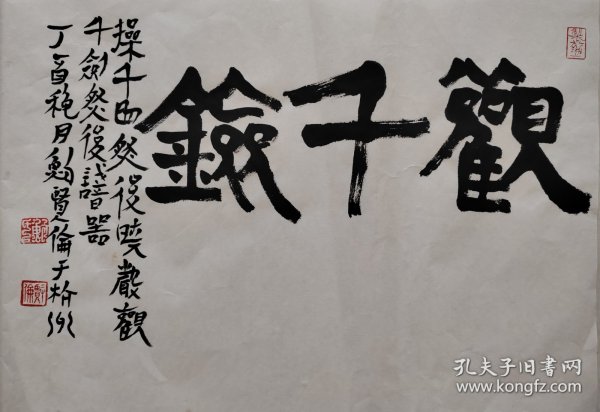 觀千鐱
操千曲然後曉聲觀
千劍然後識器
丁酉月鮑賢倫于杭州
孔夫子旧书网
www.kongfz.com